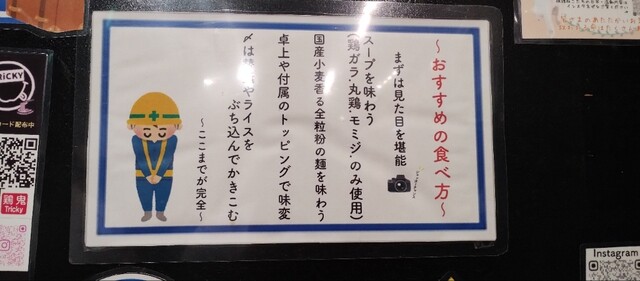 ～おすすめの食べ方～
まずは見た目を堪能
スープを味わう
(鶏ガラ.丸鶏.モミジ.のみ使用)
国産小麦香る全粒粉の麺を味わう
卓上や付属のトッピングで味変
〆は やライスを
ぶち込んでかきこむ
～ここまでが完全～
TRiCKY
カード配布中
鶏鬼
Tricky
Instagram